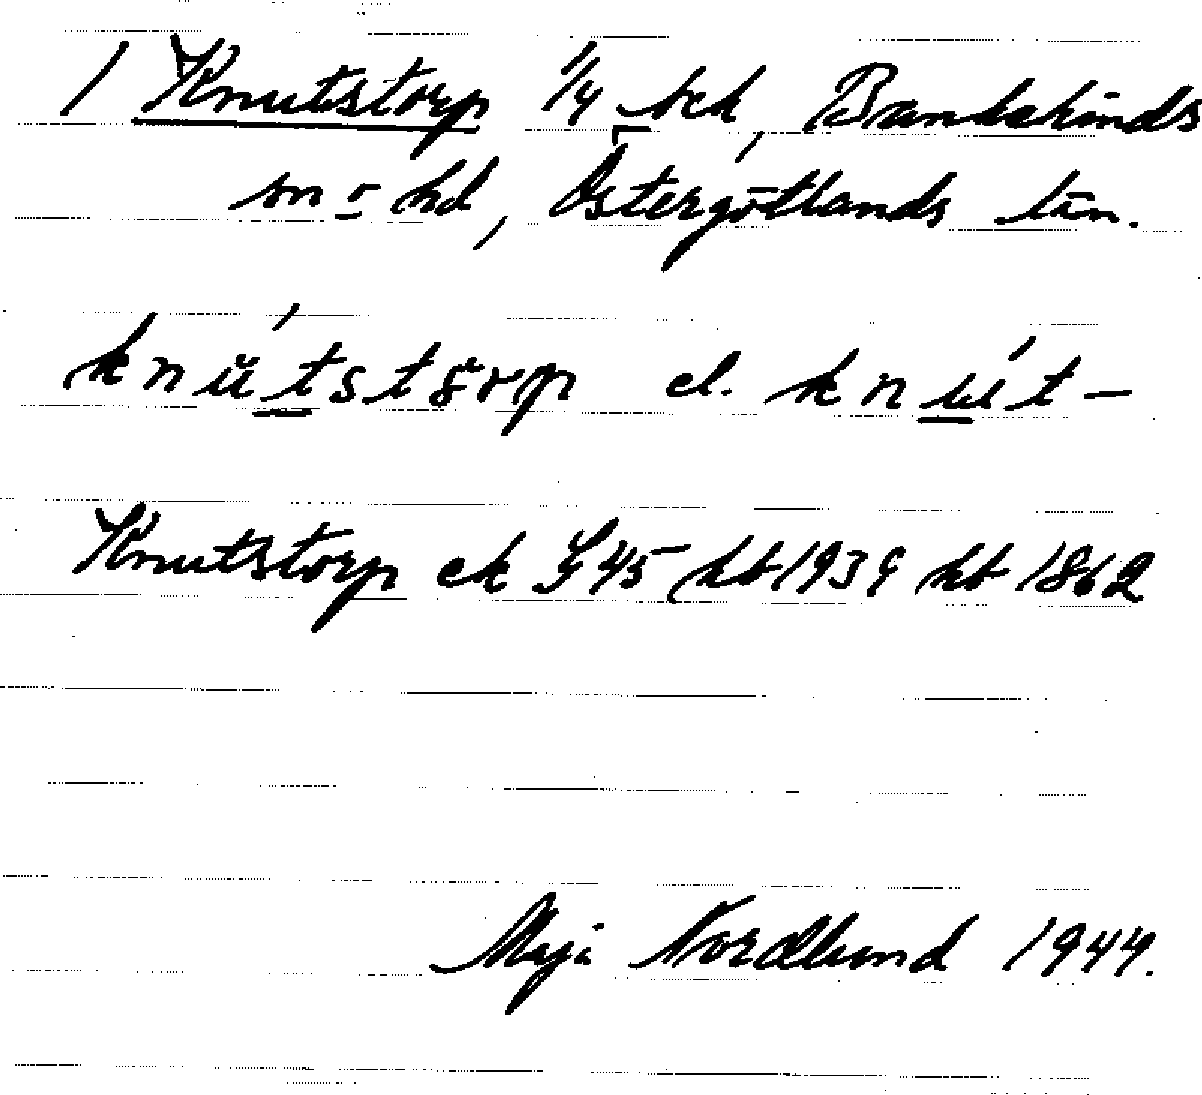 1 Knutstorp 1/4 sk, Bankekinds
sn o hd, Östergötlands län.
knutstorp el. knut-
Knutstorp ek S 45 hb 1939 hb 1862
Maj Nordlund 1944.